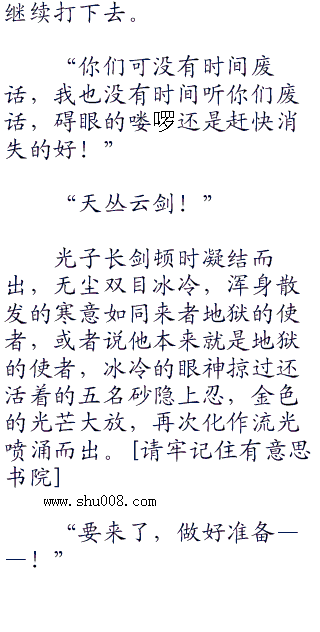 继续打下去。
“你们可没有时间废
话，我也没有时间听你们废
话，碍眼的喽啰还是赶快消
失的好！”
“天丛云剑！”
光子长剑顿时凝结而
出，无尘双目冰冷，浑身散
发的寒意如同来者地狱的使
者，或者说他本来就是地狱
的使者，冰冷的眼神掠过还
活着的五名砂隐上忍，金色
的光芒大放，再次化作流光
喷涌而出。[请牢记住有意思
书院]
www.shu008.com
“要来了，做好准备—
—！”